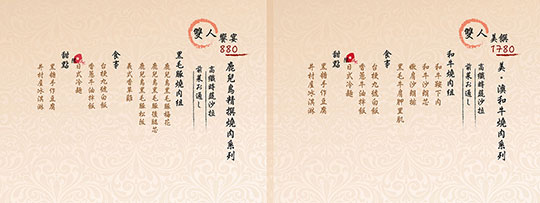 雙人
美撰
1780
美・澳和牛燒肉系列
高纖時蔬沙拉
前菜お通し
和牛燒肉組
和牛鞍下肉
和牛沙朗芯
嫩肩沙朗排
黑毛牛肩胛里肌
食事
台梗九號白飯
香蔥牛油拌飯
日式冷麵
甜點
黑糖手作豆腐
井村屋冰淇淋
雙人
饗宴
880
鹿兒島精撰燒肉系列
高纖時蔬沙拉
前菜お通し
黑毛豚燒肉組
鹿兒島黑毛豚梅花
鹿兒島黑毛豚芯
鹿兒島黑毛豚松阪
義式香草雞
食事
台梗九號白飯
香蔥牛油拌飯
日式冷麵
甜點
黑糖手作豆腐
井村屋冰淇淋